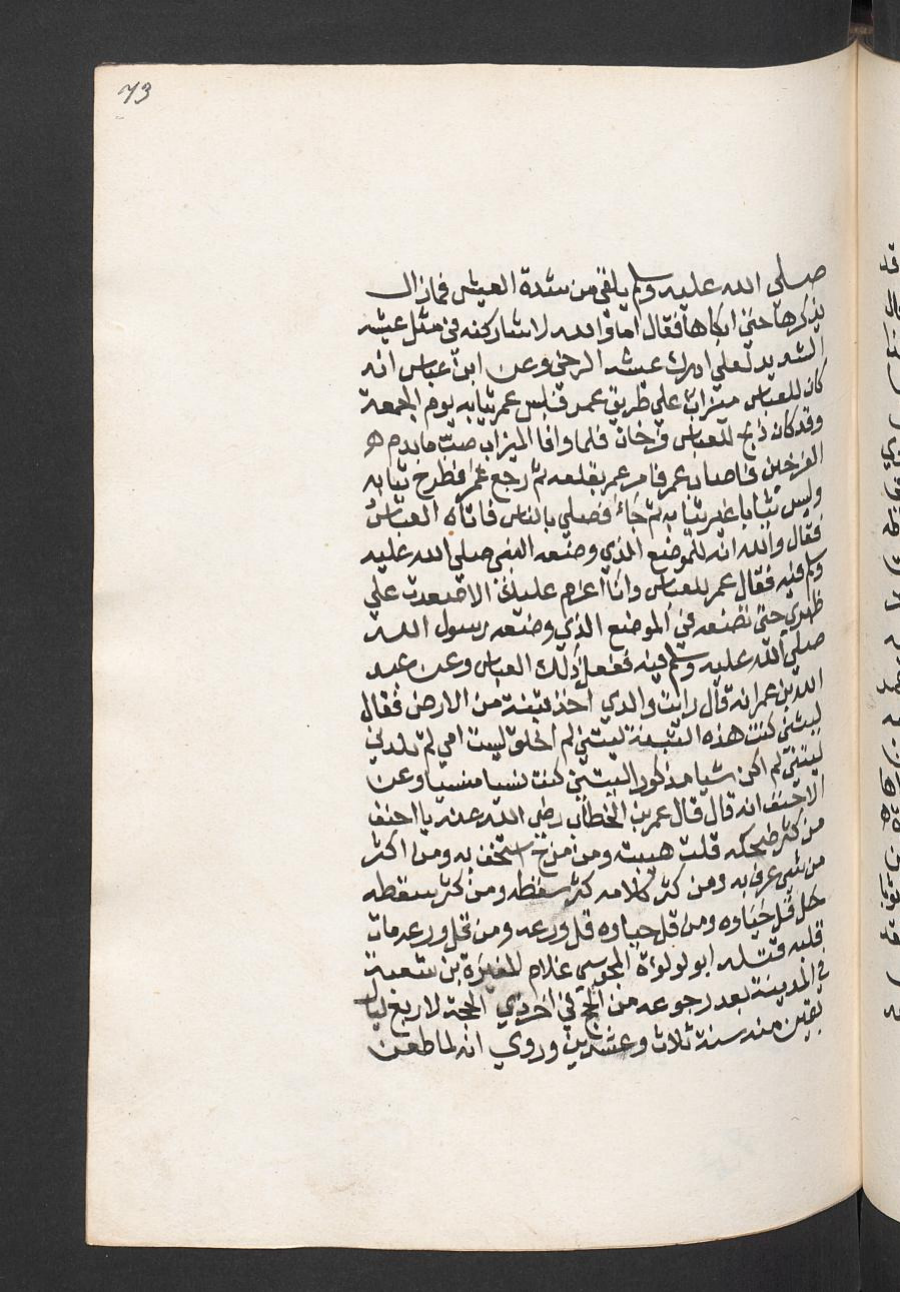 73
صلي الله عليه وسلم يلقي من شدة العيش فمازال
يذكرها حتي ابكاها فقال اما والله لاشاركنه في مثل عيشه
الشديد لعلي ادرك عيشه الرخي وعن ابن عباس انه
كان للعباس ميزاب علي طريق عمر فلبس عمر ثيابه يوم الجمعة
وقد كان ذبح للعباس فرخان فلما وافا الميزاب صب ما بدم
الفرخين فاصاب عمر فامر عمر بقلعه ثم رجع عمر فطرح ثيابه
ولبس ثيابا غير ثيابه ثم جاء فصلي بالناس فاتاه العباس
فقال والله انه للموضع الذي وضعه النبي صلي الله عليه
وسلم فيه فقال عمر للعباس وانا اعزم عليك الا صعدت علي
ظهري حتي تضعه في الموضع الذي وضعه رسول الله
صلي الله عليه وسلم فيه ففعل ذلك العباس وعن عبد
الله بن عمر انه قال رايت والدي اخذ تبنة من الارض فقال
ليتني كنت هذه التبنة ليتني لم اخلق ليت امي لم تلدني
ليتني لم اكن شيا مذكورا ليتني كنت نسيا منسيا وعن
الاحنف انه قال قال عمر بن الخطاب رضي الله عنه يا احنف
من كثر ضحكه قلت هيبته ومن مزح استخف به ومن اكثر
من شي عرف به ومن كثر كلامه كثر سقطه ومن كثر سقطه
قل حياوه ومن قل حياوه قل ورعه ومن قل ورعه مات
قلبه قتله ابو لولوة المجوسي غلام المغيرة بن شعبة
في المدينة بعد رجوعه من الحج في اخر ذي الحجة لاربع ليال
بقين منه سنة ثلاث وعشرين وروي انه لما طعن